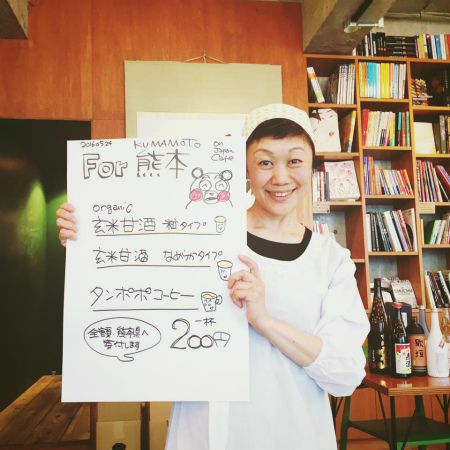 2016.5.24 KUMAMOTO
For 熊本 on Japan Cafe
organic
玄米甘酒 粒タイプ
玄米甘酒 なめらかタイプ
タンポポコーヒー
一杯
200円
全額 熊本県へ
寄付します